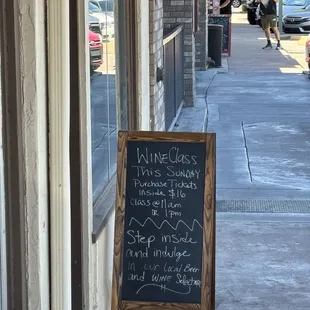 WineClass
This Sunday
Purchase Tickets
inside $16
Class @ 11am
or 1pm
Step inside
and indulge
in our Local Beer
and Wine Selection